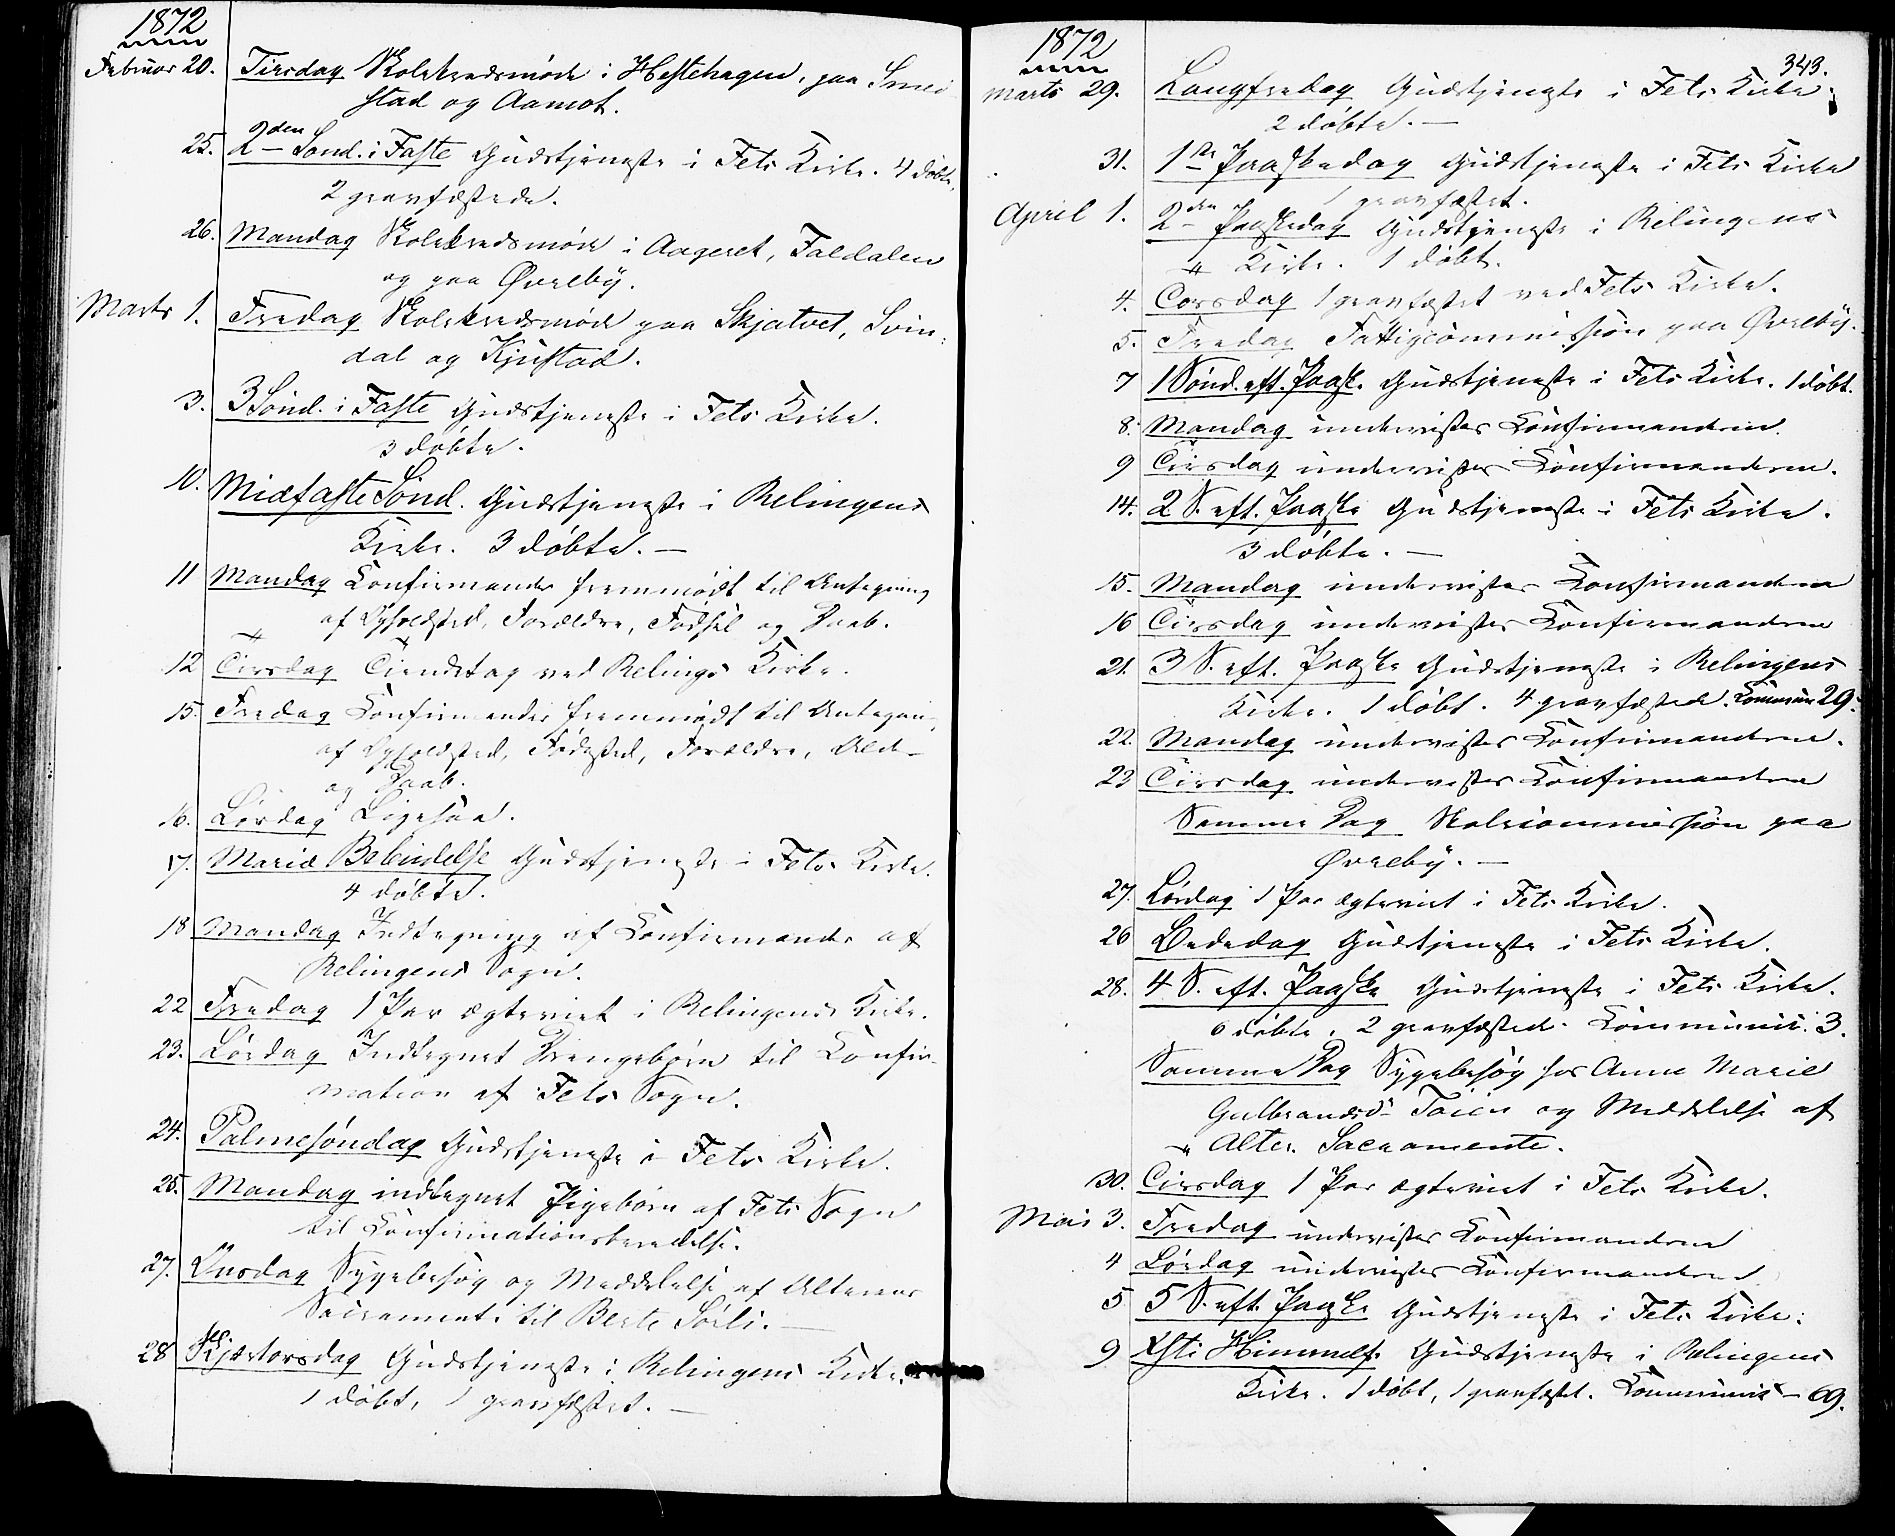 1872
Februar 20. Tirsdag Skolekredsmøde i Hestehagen, paa Smei
stad og Aamot.
25. 2den Sønd. i Faste Gudstjeneste i Fets Kirke. 4 døbte,
2 gravfæstede.
26. Mandag Skolekredsmøde i Aageret, Faldalen
og paa Øvreby.
Marts 1. Fredag Skolekredsmøde paa Skjatvet, Svin-
dal og Kjustad.
3. 3 Sønd. i Faste Gudstjeneste i Fets Kirke.
3 døbte.
10. Midfaste Sønd. Gudstjeneste i Relingens
Kirke. 3 døbte. —
11 Mandag Confirmander fremmødt til Antegning
af Opholdsted, Forældre, Fødsel og Daab.
12 Tirsdag Tiendetag ved Relings Kirke.
15. Fredag Confirmander fremmødt til Antegn.
af Opholdsted, Fødested, Forældre, Alder
og Daab.
16. Lørdag Ligesaa.
17. Mariæ Bebudelse Gudstjeneste i Fets Kirke.
4 døbte.
18 Mandag Indtegning af Confirmander af
Relingens Sogn.
22 Fredag 1 Par ægteviet i Relingens Kirke.
23. Lørdag Indtegnet Drengebørn til Confir-
mation af Fets Sogn.
24. Palmesøndag Gudstjeneste i Fets Kirke.
25. Mandag indtegnet Pigebørn af Fets Sogn
til Confirmationsberedelse.
27. Onsdag Sygebesøg og Meddelelse af Alterens
Sacrament til Berte Sørli. —
28 Skjærtorsdag Gudstjeneste i Relingens Kirke.
1 døbt, 1 gravfæstet. —
1872
343.
Marts 29. Langfredag Gudstjeneste i Fets Kirke.
2 døbte. —
31. 1ste Paaskedag Gudstjeneste i Fets Kirke
1 gravfæstet.
April 1. 2den Paaskedag Gudstjeneste i Relingens
Kirke. 1 døbt.
4. Torsdag 1 gravfæstet ved Fets Kirke.
5. Fredag Fattigcommission paa Øvreby.
7 1 Sønd. eft. Paaske Gudstjeneste i Fets Kirke. 1 døbt.
8. Mandag undervistes Confirmanderne.
9 Tirsdag undervistes Confirmanderne.
14. 2 S. eft. Paaske Gudstjeneste i Fets Kirke.
3 døbte. —
15. Mandag undervistes Confirmanderne
16 Tirsdag undervistes Confirmanderne
21. 3 S. eft. Paaske Gudstjeneste i Relingens
Kirke. 1 døbt. 4 gravfæstede. Commun. 29.
22. Mandag undervistes Confirmanderne.
23 Tirsdag undervistes Confirmanderne
Samme Dag Skolecommission paa
Øvreby. —
27. Lørdag 1 Par ægteviet i Fets Kirke.
26 Bededag Gudstjeneste i Fets Kirke.
28. 4 S. eft. Paaske Gudstjeneste i Fets Kirke.
6 døbte, 2 gravfæstede. Communic. 3.
Samme Dag Sygebesøg hos Anne Marie
Gulbrandsd. Toien og Meddelelse af
Alter. Sacramente.
30. Tirsdag 1 Par ægteviet i Fets Kirke.
Mai 3. Fredag undervistes Confirmanderne
4 Lørdag undervistes Confirmanderne
5 5 S. eft. Paaske Gudstjeneste i Fets Kirke.
9 Xsti Himmelf. Gudstjeneste i Relingens
Kirke. 1 døbt, 1 gravfæstet. Communic. 69.